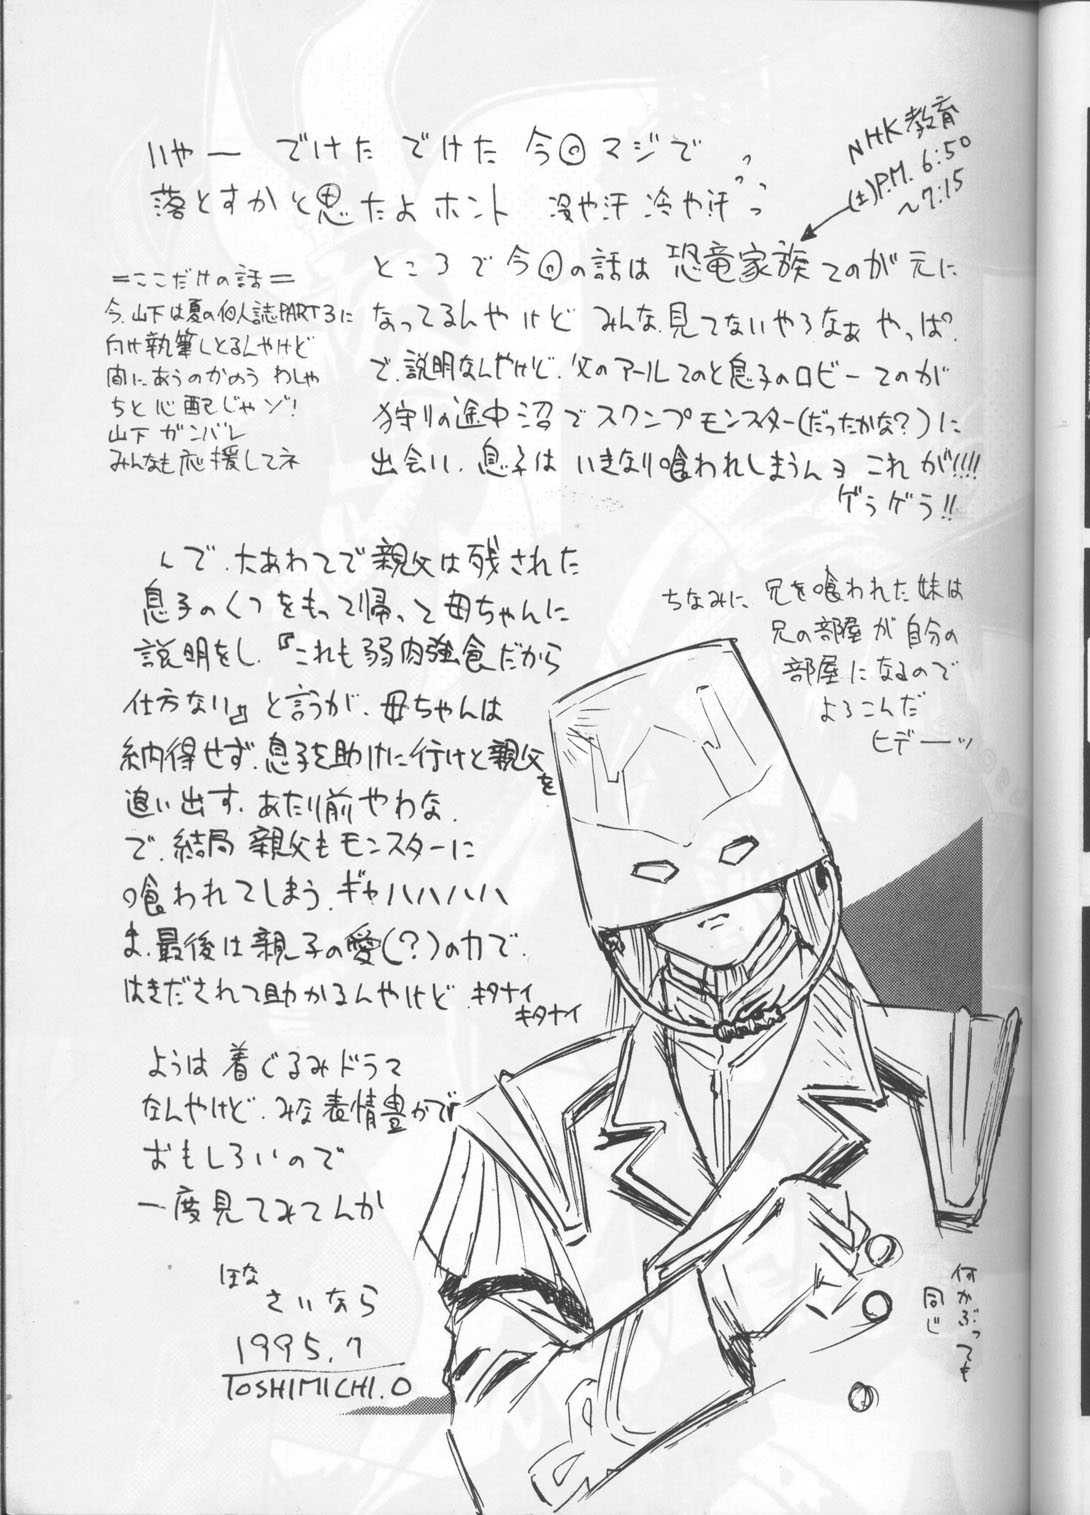 いやー でけた でけた 今回マジで
落とすかと思たよホント 冷や汗 冷や汗
NHK教育
(土)P.M. 6:50
〜7:15
ところで今回の話は 恐竜家族 てのが元に
なってるんやけど みんな見てないやろなぁ やっぱ?
で、説明なんやけど、父のアールてのと息子のロビーてのが
狩りの途中沼でスワンプモンスター(だったかな?)に
出会い、息子は いきなり喰われしまうんョ これが!!!!
ゲラゲラ!!
=ここだけの話=
今、山下は夏の個人誌PART3に
向け執筆しとるんやけど
間にあうのかのう わしゃ
ちと心配じゃゾ!
山下 ガンバレ
みんなも応援してネ
んで、大あわてで親父は残された
息子のくつをもって帰って母ちゃんに
説明をし、『これも弱肉強食だから
仕方ない』と言うが、母ちゃんは
納得せず、息子を助けに行けと親父を
追い出す、あたり前やわな、
で、結局 親父もモンスターに
喰われてしまう、ギャハハハハハ
ま、最後は親子の愛(?)の力で、
はきだされて助かるんやけど キタナイ
キタナイ
ちなみに 兄を喰われた妹は
兄の部屋が自分の
部屋になるので
よろこんだ
ヒデーッ
ようは着ぐるみドラマ
なんやけど、みな表情豊かで
おもしろいので
一度見てみてんか
ほな
さいなら
1995.7
TOSHIMICHI.O
何かぶっても
同じ